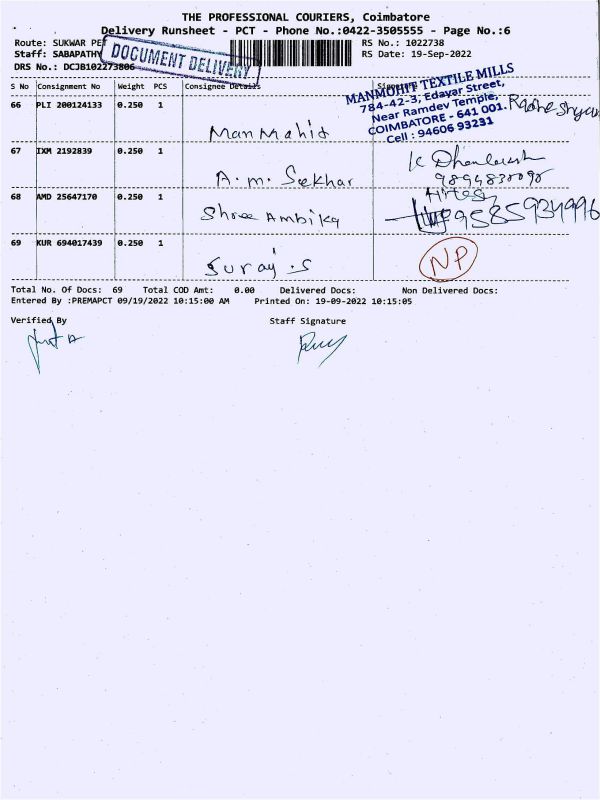 THE PROFESSIONAL COURIERS, Coimbatore
Delivery Runsheet - PCT - Phone No.:0422-3505555 - Page No.:6
Route: SUKWAR PET
RS No.: 1022738
Staff: SABAPATHY
RS Date: 19-Sep-2022
DRS No.: DCJB102273806
DOCUMENT DELIVERY
S No Consignment No Weight PCS Consignee Details Signature
MANMOHIT TEXTILE MILLS
784-42-3, Edayar Street,
Near Ramdev Temple,
COIMBATORE - 641 001.
Cell : 94606 93231
Radhe Shyam
66 PLI 200124133 0.250 1
Man Mahid
67 IXM 2192839 0.250 1
A.m. Sekhar
K Dhanlaxsh
9894830090
68 AMD 25647170 0.250 1
Shree Ambika
Hitesh
9585934996
69 KUR 694017439 0.250 1
Suraj.S
NP
Total No. Of Docs: 69 Total COD Amt: 0.00 Delivered Docs: Non Delivered Docs:
Entered By :PREMAPCT 09/19/2022 10:15:00 AM Printed On: 19-09-2022 10:15:05
Verified By Staff Signature